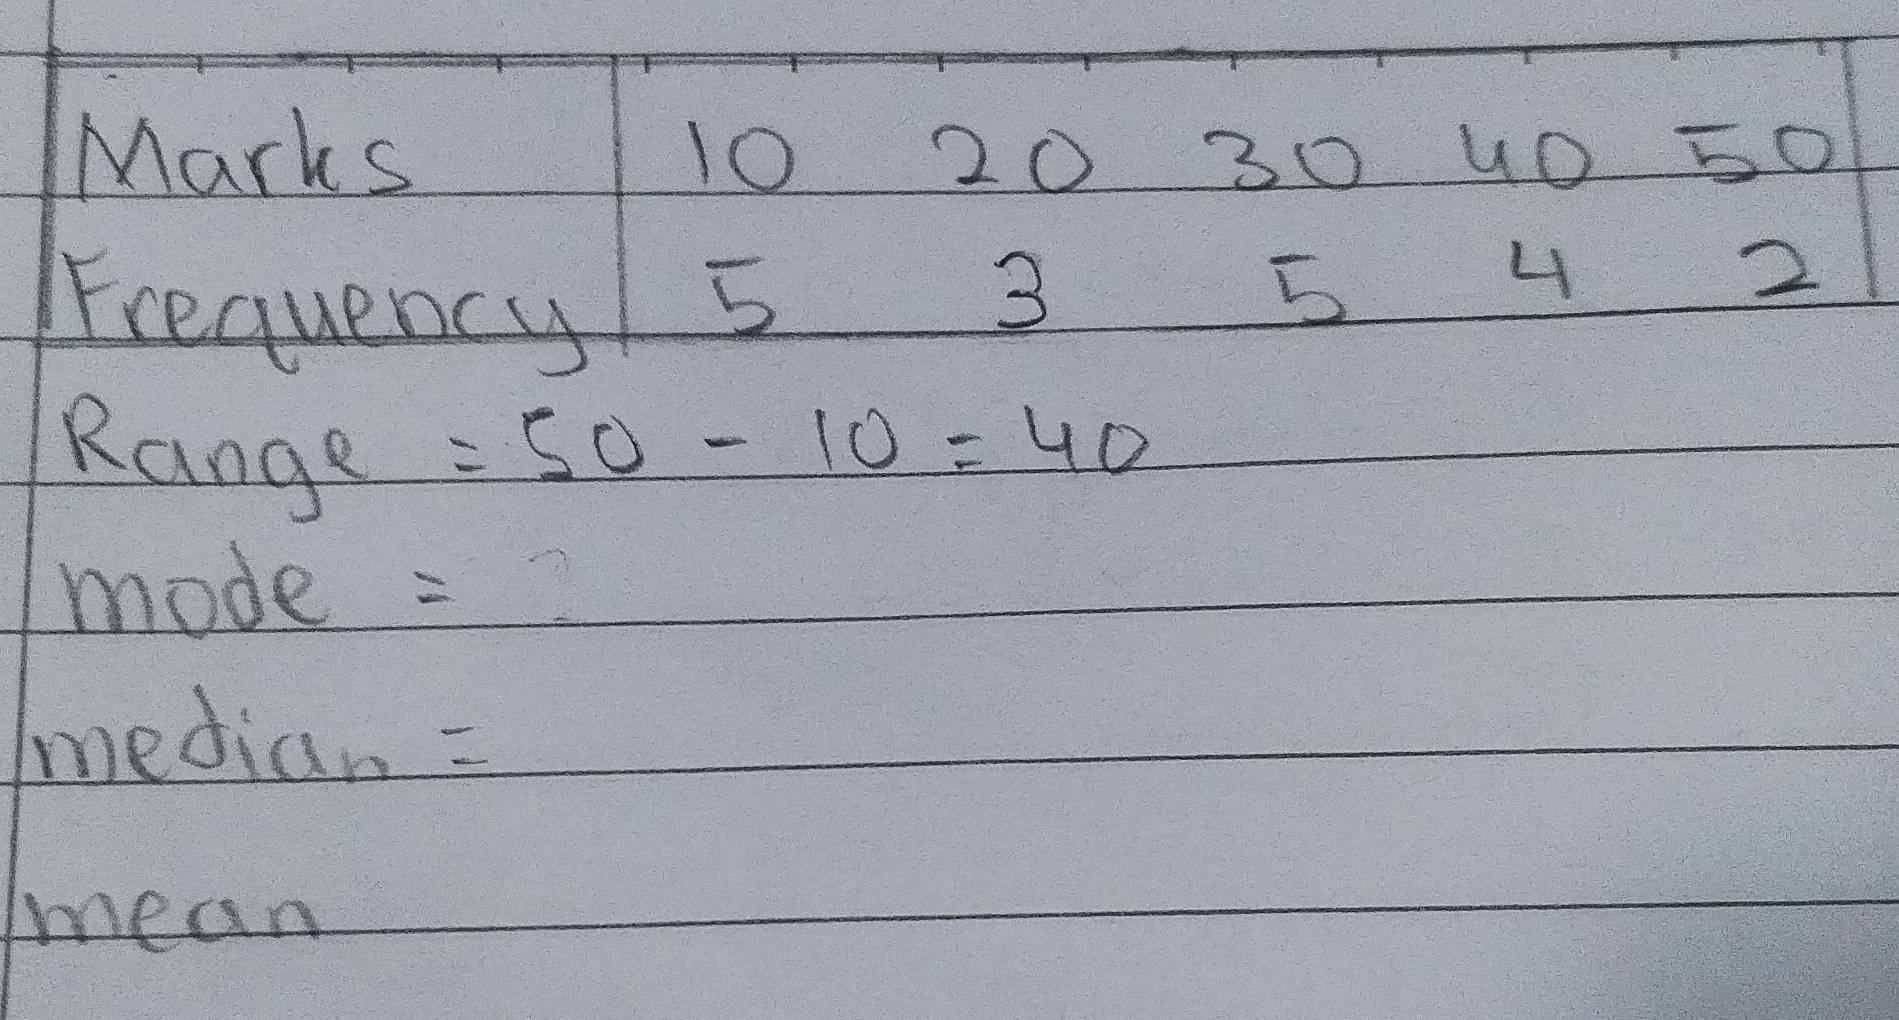 Marks 10 20 30 40 50
Frequency 5 3 5 4 2
Range = 50 - 10 = 40
mode = ?
median =
mean